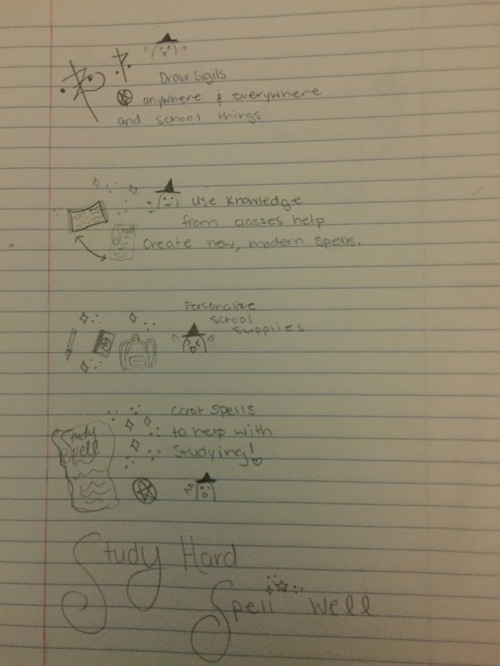 Draw Sigils
anywhere & everywhere
and school things
use knowledge
from classes help
create new, modern spells.
Personalize
school
supplies
cast spells
to help with
studying!
Study
Spell
Study Hard
Spell Well